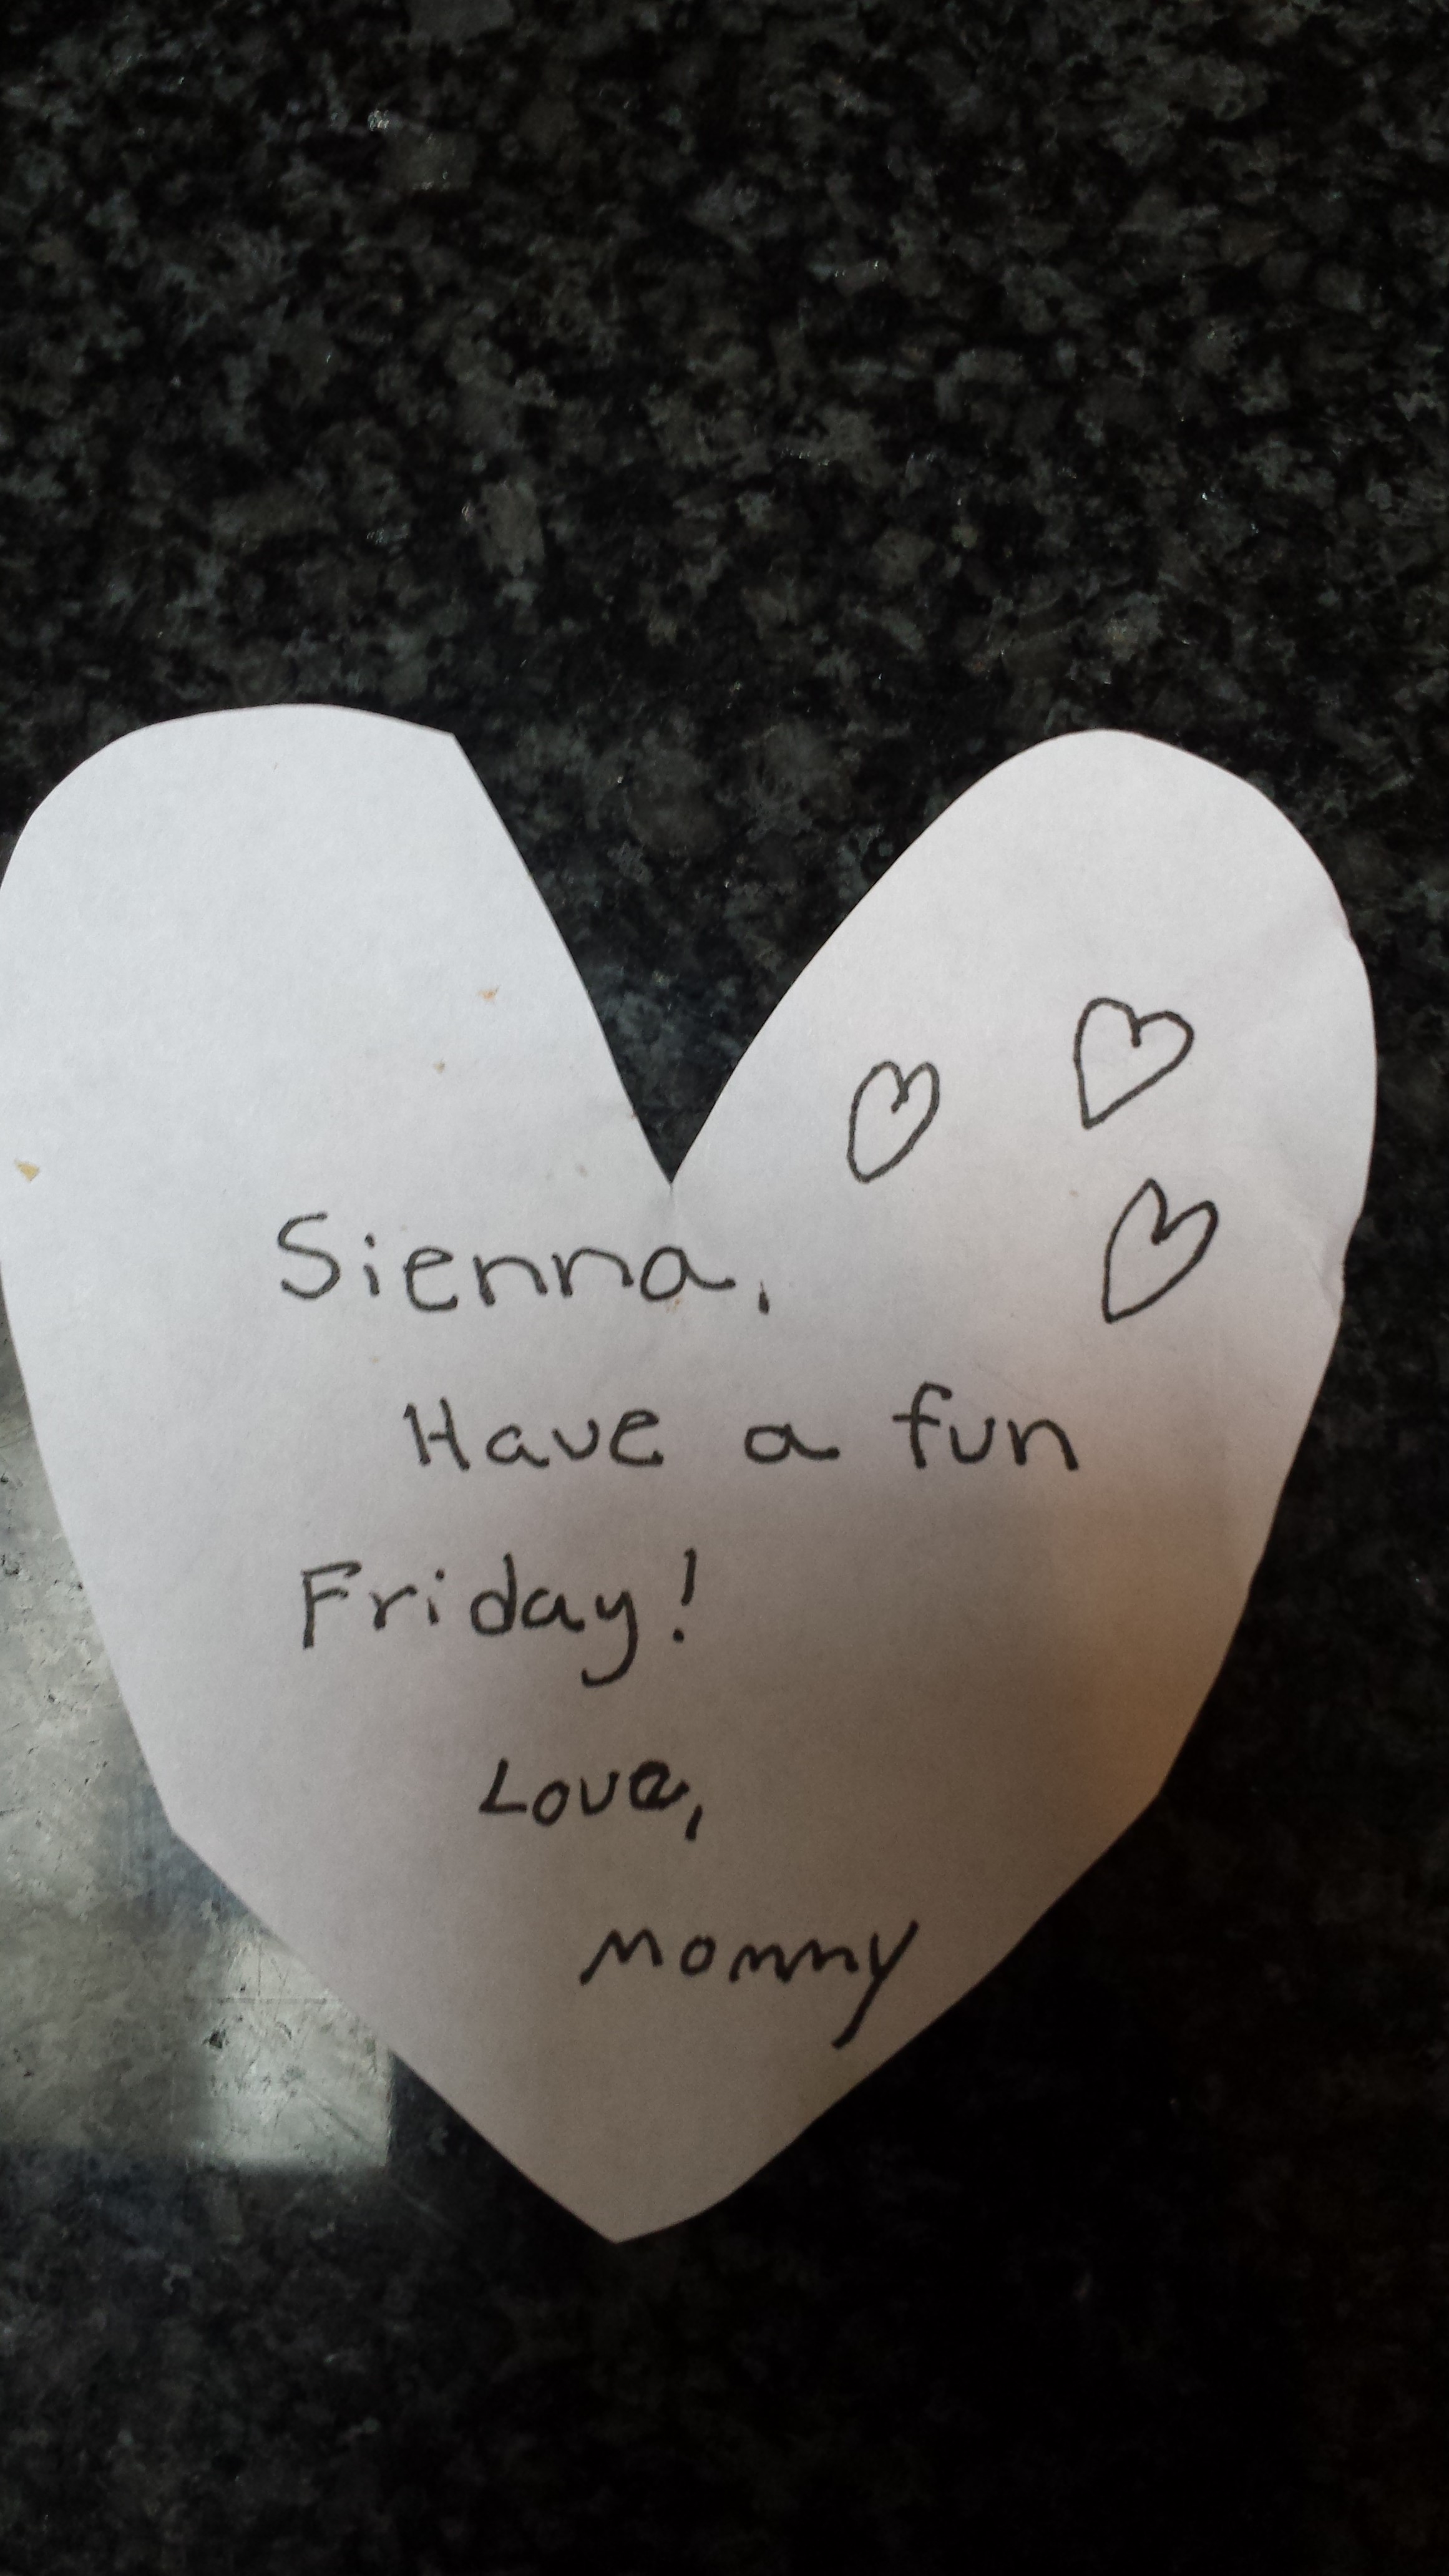 Sienna,
Have a fun
Friday!
Love,
Mommy